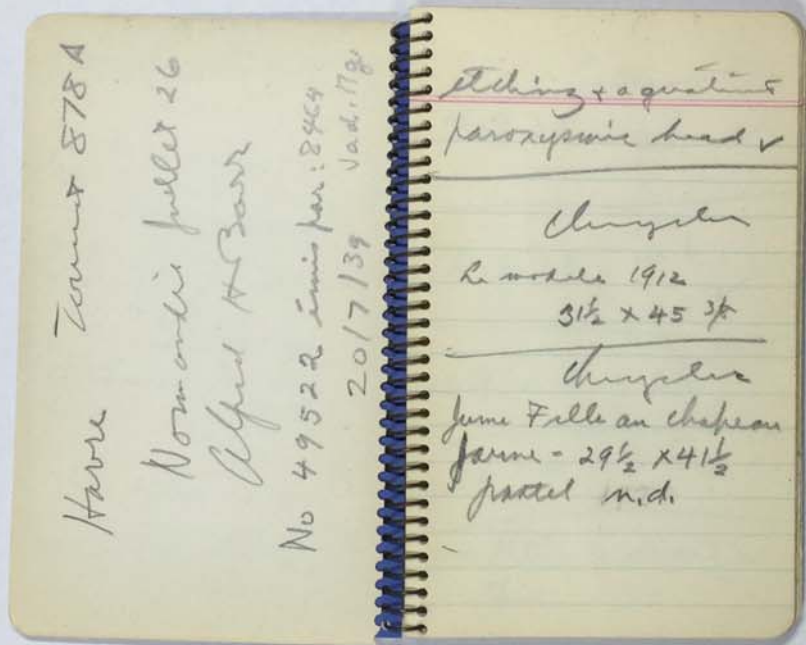 Havre Tourist 878 A
Normandie juillet 26
Alfred H Barr
No 49522 émis par: 8464
20/7/39
etching & aquatint
paroxysmic head ✓
Chrysler
Le modele 1912
31½ x 45 3/8
Chrysler
Jeune Fille au chapeau
jaune - 29½ x 41½
pastel n.d.